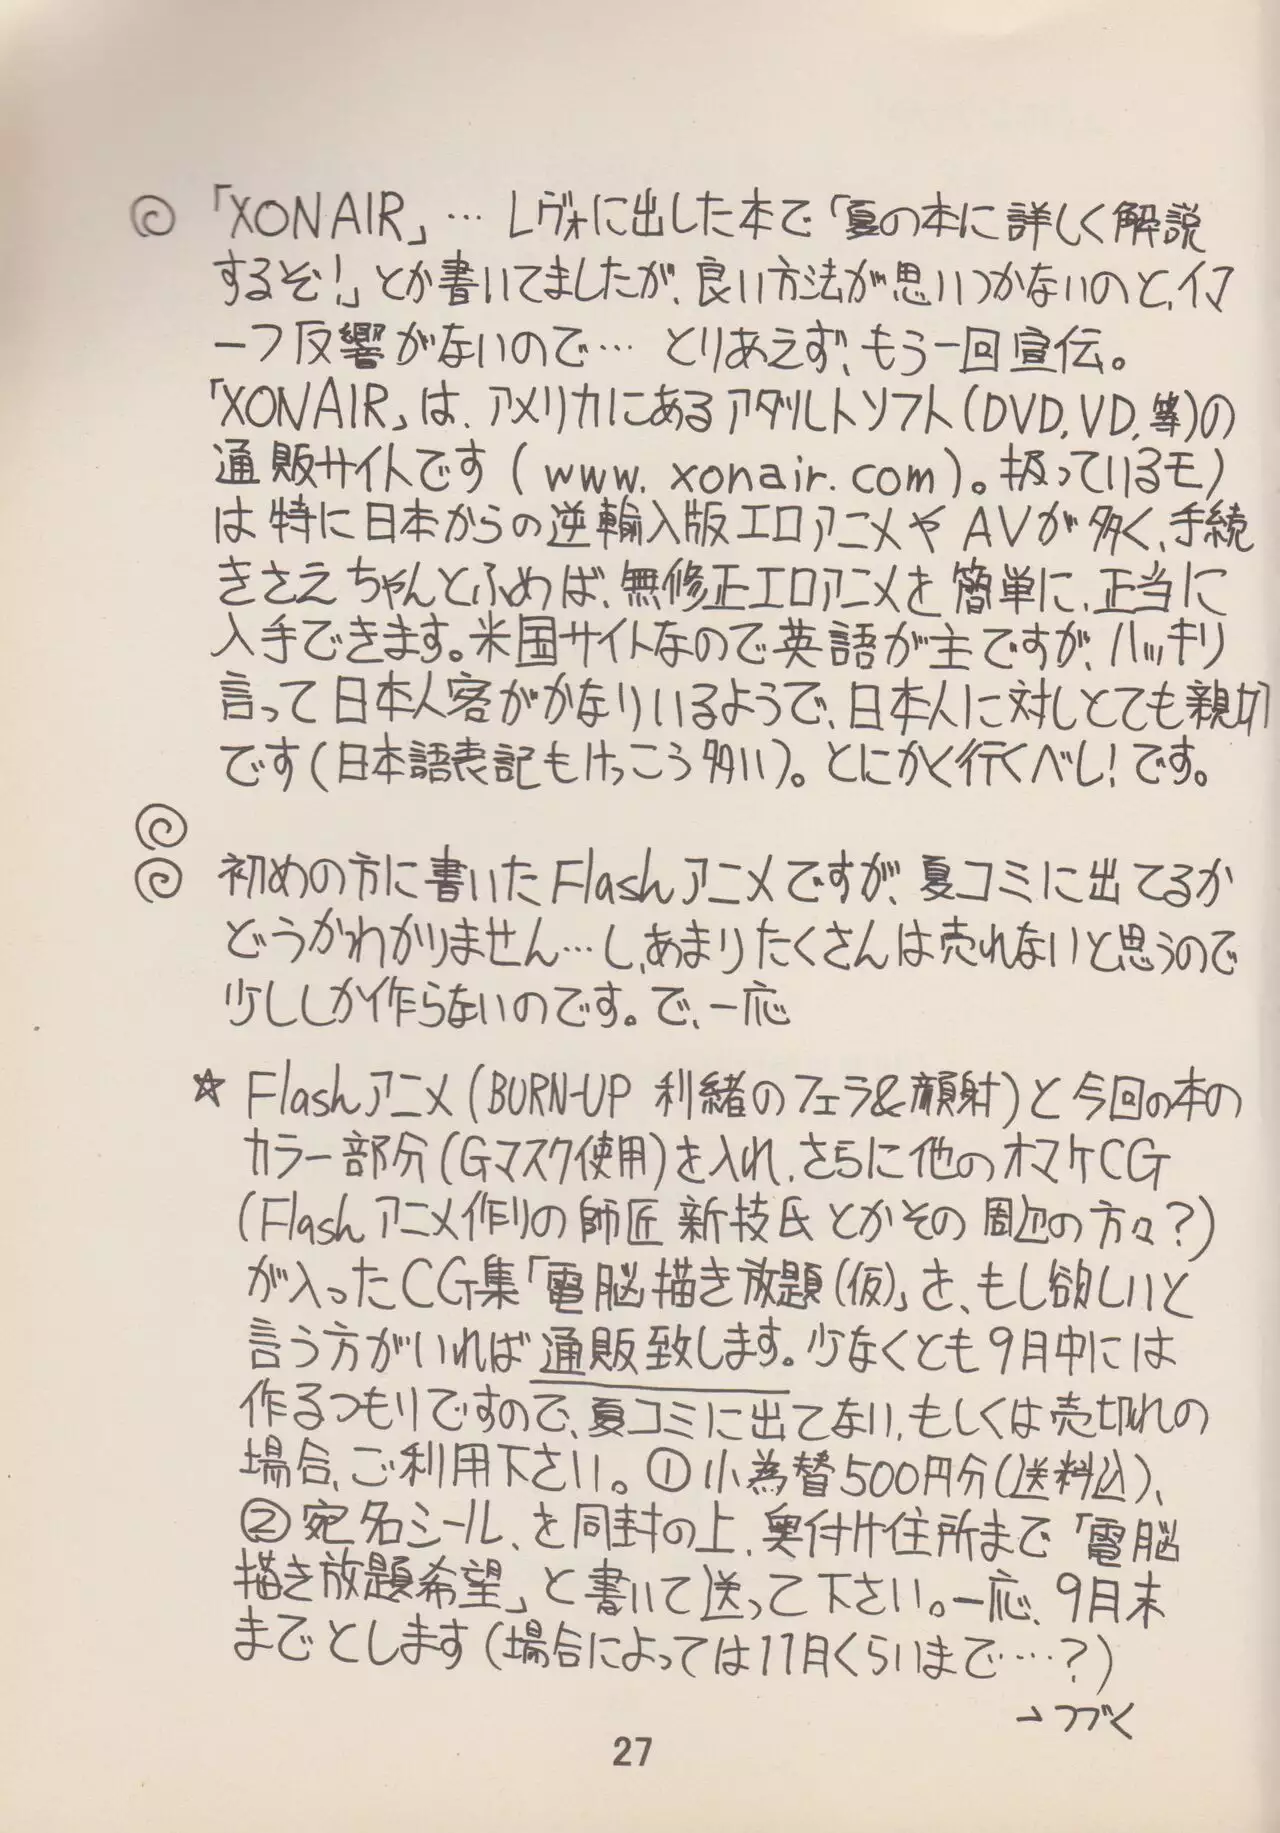 「XONAIR」… レヴォに出した本で「夏の本に詳しく解説
するぞ!」とか書いてましたが、良い方法が思いつかないのと、イマ
一フ反響がないので… とりあえず、もう一回宣伝。
「XONAIR」は、アメリカにあるアダルトソフト(DVD,VD,等)の
通販サイトです(www.xonair.com)。扱っているモノ
は特に日本からの逆輸入版エロアニメやAVが多く、手続
きさえちゃんとふめば、無修正エロアニメを簡単に、正当に
入手できます。米国サイトなので英語が主ですが、ハッキリ
言って日本人客がかなりいるようで、日本人に対しとても親切
です(日本語表記もけっこう多い)。とにかく行くべし!です。
初めの方に書いたFlashアニメですが、夏コミに出てるか
どうかわかりません…し、あまりたくさんは売れないと思うので
少ししか作らないのです。で、一応
☆ Flashアニメ(BURN-UP 利緒のフェラ&顔射)と今回の本の
カラー部分(Gマスク使用)を入れ、さらに他のオマケCG
(Flashアニメ作りの師匠 新技氏とかその周辺の方々?)
が入ったCG集「電脳描き放題(仮)」を、もし欲しいと
言う方がいれば通販致します。少なくとも9月中には
作るつもりですので、夏コミに出てない、もしくは売切れの
場合、ご利用下さい。①小為替500円分(送料込)、
②宛名シール、を同封の上、奥付け住所まで「電脳
描き放題希望」と書いて送って下さい。一応、9月末
までとします(場合によっては11月くらいまで……?)
→つづく
27